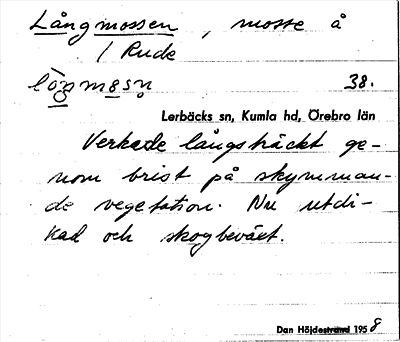 Långmossen, mosse å
/ Rude
lòŋmɵsn̥ 38.
Lerbäcks sn, Kumla hd, Örebro län
Verkade långsträckt ge-
nom brist på skymman-
de vegetation. Nu utdi-
kad och skogbeväxt.
Dan Höjdestrand 1958